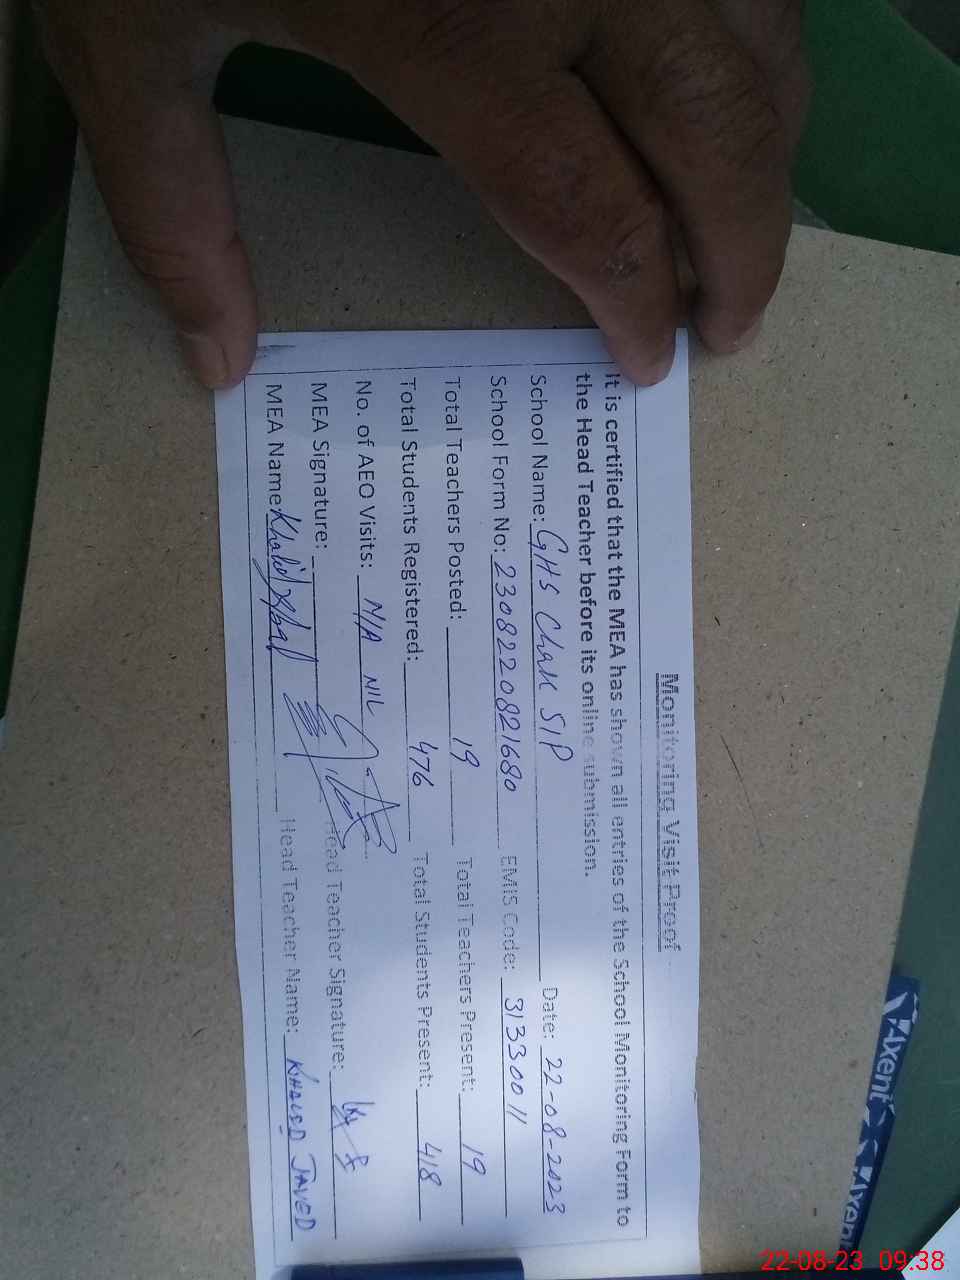 Monitoring Visit Proof
It is certified that the MEA has shown all entries of the School Monitoring Form to
the Head Teacher before its online submission.
School Name: GHS Chak 51P Date: 22-08-2023
School Form No: 2308220821680 EMIS Code: 31330011
Total Teachers Posted: 19 Total Teachers Present: 19
Total Students Registered: 476 Total Students Present: 418
No. of AEO Visits: N/A NIL
MEA Signature: Head Teacher Signature:
MEA Name: Khalid Iqbal Head Teacher Name: KHALED JAVED
Axent
Axent
22-08-23 09:38